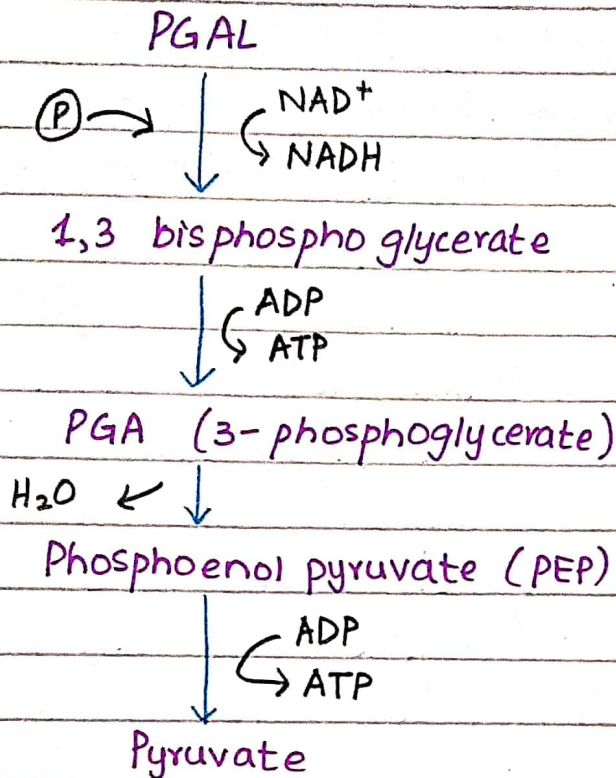 PGAL
P
NAD+
NADH
1,3 bisphospho glycerate
ADP
ATP
PGA (3-phosphoglycerate)
H₂O
Phosphoenol pyruvate (PEP)
ADP
ATP
Pyruvate